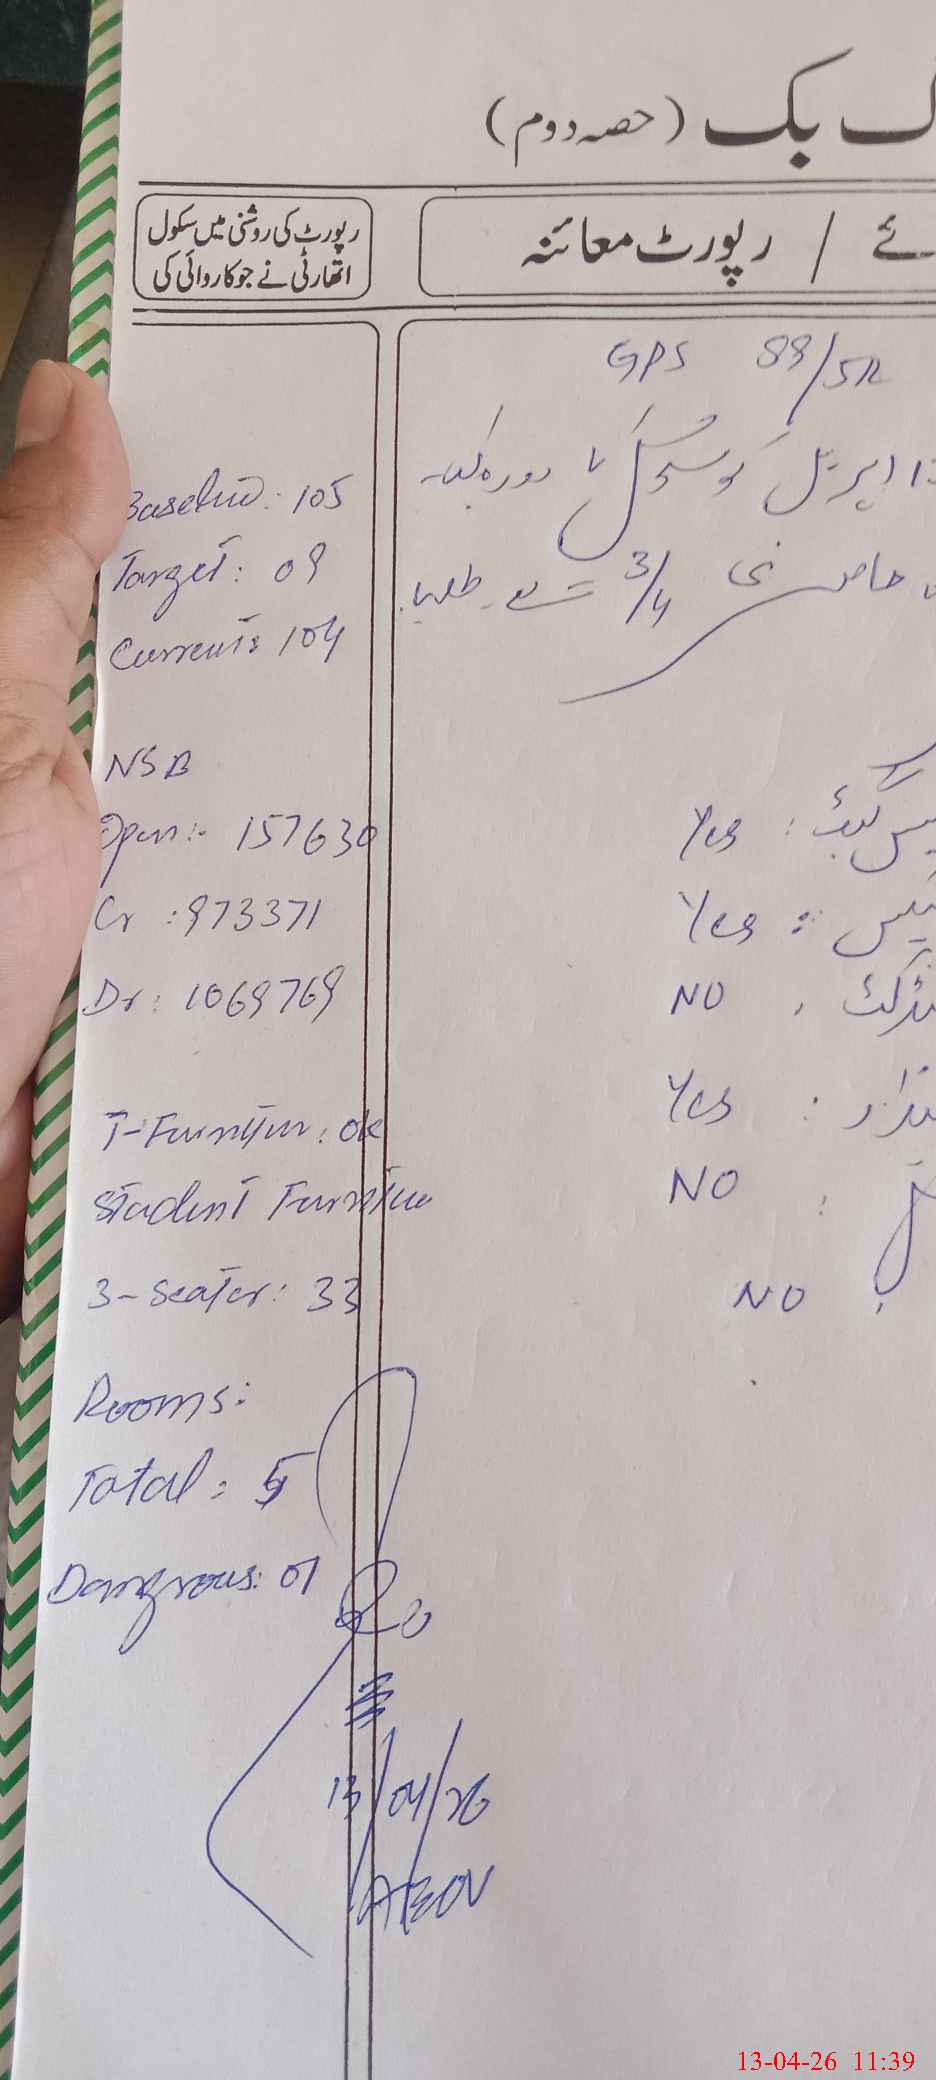 ک بک (حصہ دوم)
ئے / رپورٹ معائنہ
رپورٹ کی روشنی میں سکول
اتھارٹی نے جو کاروائی کی
GPS 88/5R
اپریل کو سکول کا دورہ کیا۔
حاضری 3/4 تھے۔ طلبا
Yes :
Yes :
NO
Yes :
NO :
NO
Baseline: 105
Target: 09
Current: 104
NSB
Open:- 157630
Cr : 973371
Dr: 1069769
T-Furniture: ok
Student Furniture
3-Seater: 33
Rooms:
Total: 5
Dangrous: 01
13/04/26
AEO
13-04-26 11:39